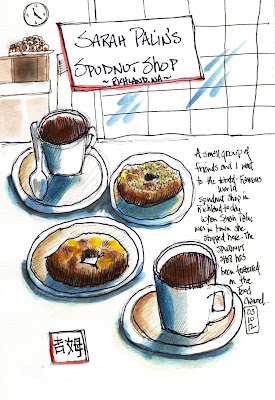 SARAH PALIN'S
SPUDNUT SHOP
~RICHLAND, WA~
A small group of
friends and I went
to the World-Famous
spudnut shop in
Richland today.
When Sarah Palin
was in town she
stopped here. The
spudnut
shop has
been featured
on the
Food
Channel.
03
10
12
吉姆